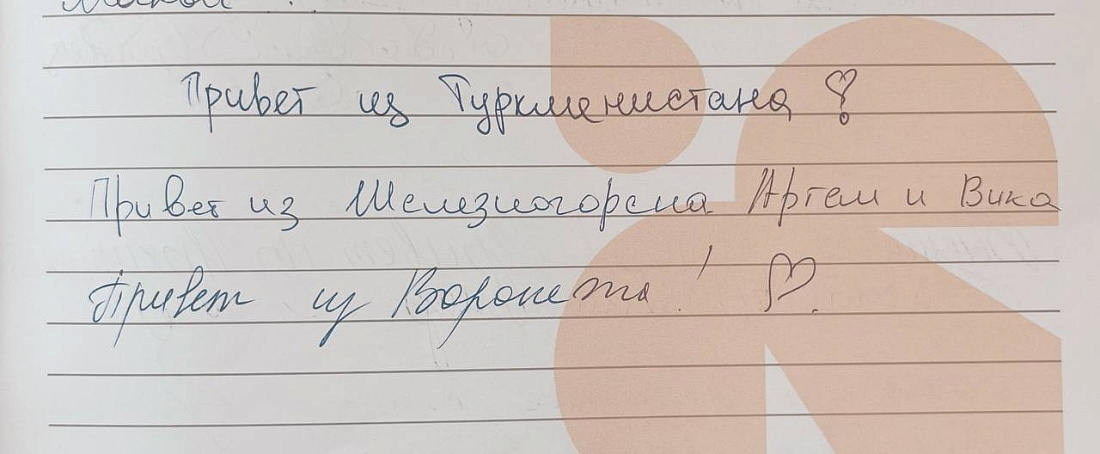 Привет из Туркменистана
Привет из Железногорска Артем и Вика
Привет из Воронежа!